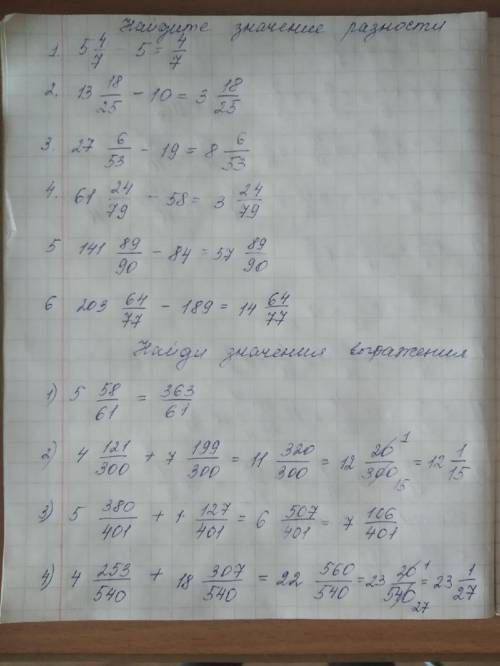 Найдите значение разности
1. 5 4/7 - 5 = 4/7
2. 13 18/25 - 10 = 3 18/25
3. 27 6/53 - 19 = 8 6/53
4. 61 24/79 - 58 = 3 24/79
5 141 89/90 - 84 = 57 89/90
6 203 64/77 - 189 = 14 64/77
Найди значения выражения
1) 5 58/61 = 363/61
2) 4 121/300 + 7 199/300 = 11 320/300 = 12 20/300 1 15 = 12 1/15
3) 5 380/401 + 1 127/401 = 6 507/401 = 7 106/401
4) 4 253/540 + 18 307/540 = 22 560/540 = 23 20/540 1 27 = 23 1/27